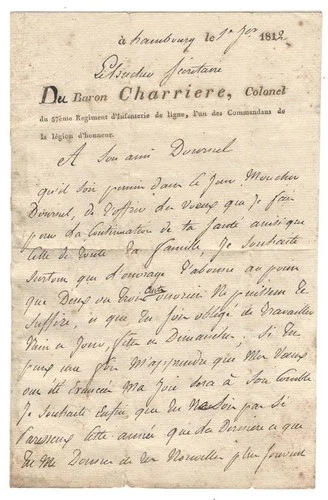 à hambourg le 1er Jer 1812
Lebucher Sécrétaire
Du Baron Charriere, Colonel
du 57ème Regiment d'Infanterie de ligne, l'un des Commandans de
la légion d'honneur.
A Son ami Dournel
qu'il Soit permis dans ce Jour Moncher
Dournel, de t'offrir des vœux que Je fais
pour la Continuation de ta Santé ainsi que
Celle de toute ta famille, Je Souhaite
Surtout que l'ouvrage t'abonne au point
que Deux ou trois ouvriers Ne puissent te
Suffire, et que tu Sois obligé de travailler
Nuit et Jour, fêtes et Dimanches, Si tu
peux un Jour M'apprendre que Mes Vœux
ont été Exaucés Ma Joie Sera à Son Comble
Je Souhaite Enfin que tu Ne Sois pas Si
Paresseux Cette année que la Derniere et que
tu Me Donnes de tes Nouvelles plus Souvent